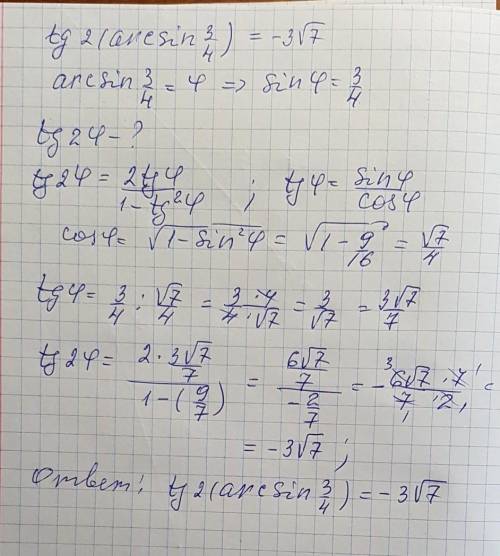 tg 2(arcsin 3/4) = -3√7
arcsin 3/4 = φ => sin φ = 3/4
tg 2φ - ?
tg 2φ = 2tgφ / 1 - tg²φ ; tgφ = sinφ / cosφ
cosφ = √(1 - sin²φ) = √(1 - 9/16) = √7/4
tgφ = 3/4 : √7/4 = 3·4 / 4·√7 = 3/√7 = 3√7/7
tg 2φ = (2·3√7/7) / (1 - (9/7)) = (6√7/7) / (-2/7) = - 6√7·7 / 7·2 =
= -3√7 ;
Ответ: tg 2(arcsin 3/4) = -3√7